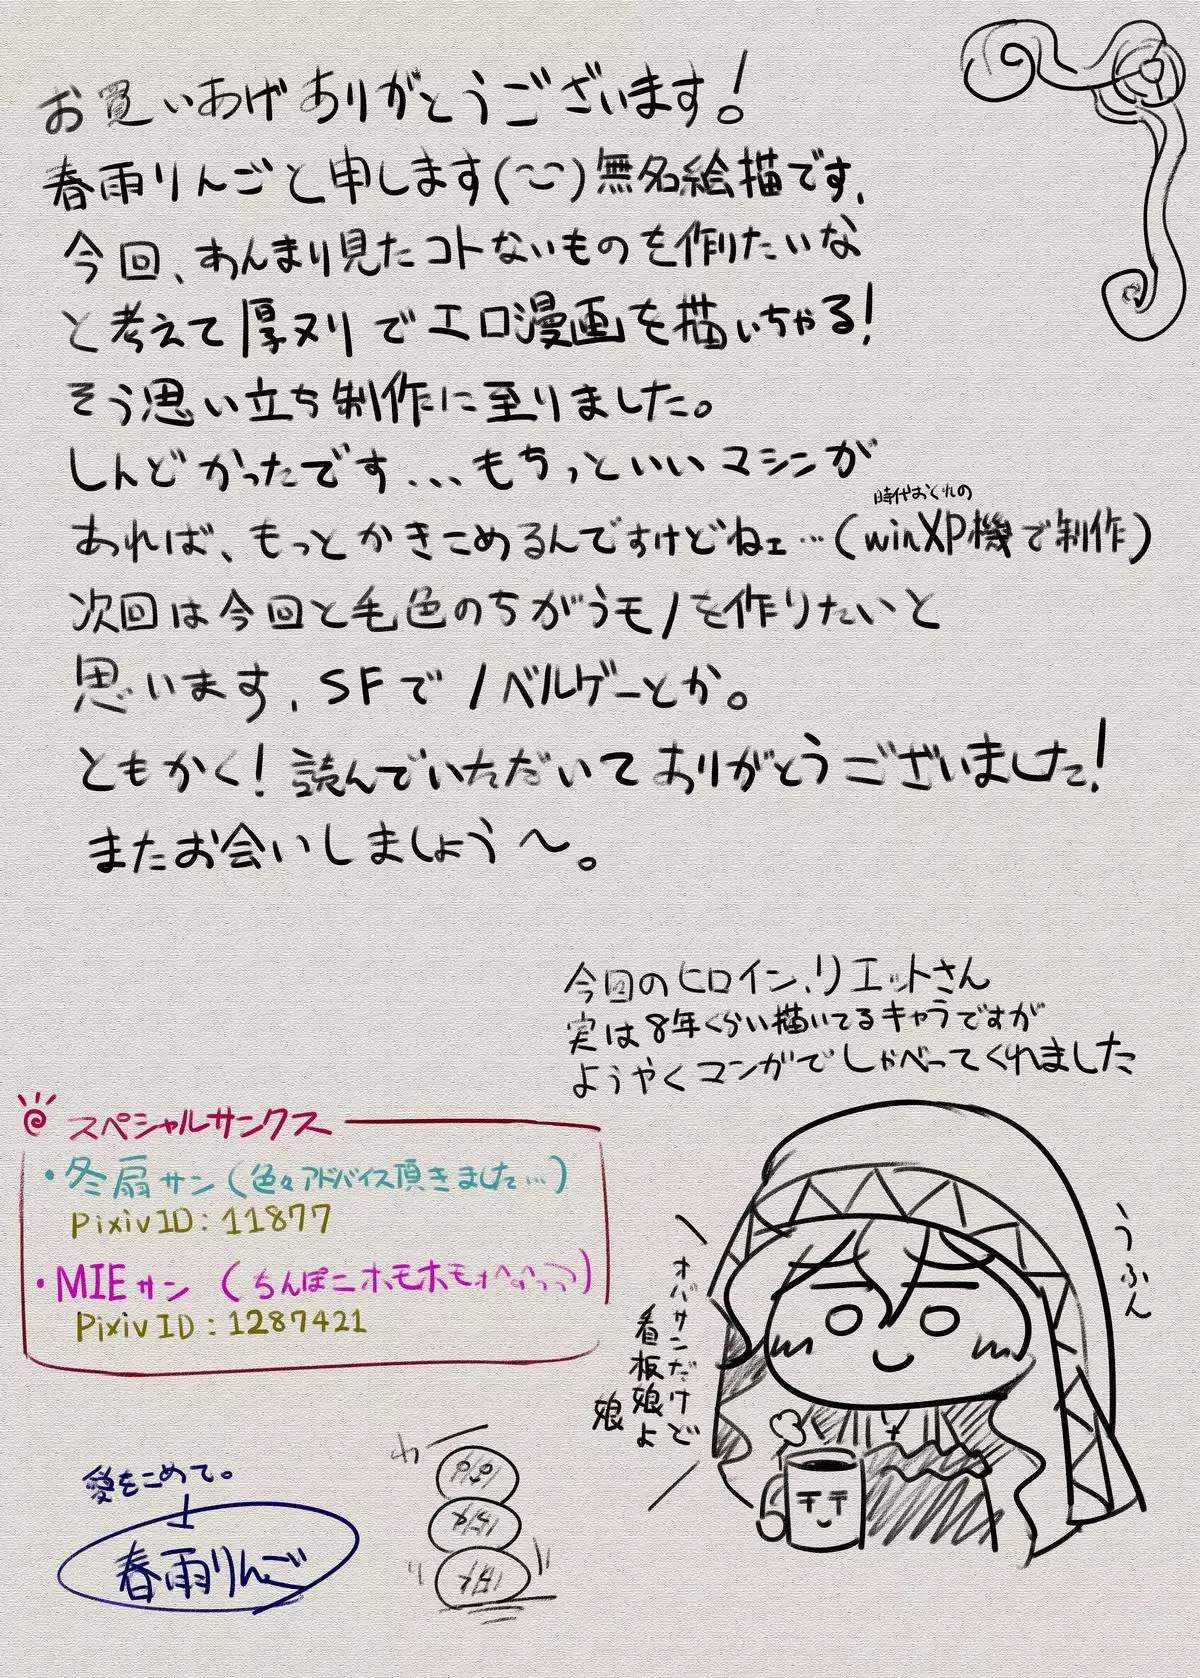 お買いあげありがとうございます!
春雨りんごと申します(^^)無名絵描です、
今回、あんまり見たコトないものを作りたいな
と考えて厚ヌリでエロ漫画を描いちゃる!
そう思い立ち制作に至りました。
しんどかったです...もちっといいマシンが
あれば、もっとかきこめるんですけどねェ…(winXP機で制作)
時代おくれの
次回は今回と毛色のちがうモノを作りたいと
思います、SFでノベルゲーとか。
ともかく!読んでいただいてありがとうございました!
またお会いしましょう〜。
今回のヒロイン、リエットさん
実は8年くらい描いてるキャラですが
ようやくマンガでしゃべってくれました
スペシャルサンクス
・冬扇サン(色々アドバイス頂きました…)
PixivID:11877
・MIEサン(ちんぽこホモホモ
PixivID:1287421
うふん
オバサンだけど
看板娘よ
娘
愛をこめて。
春雨りんご